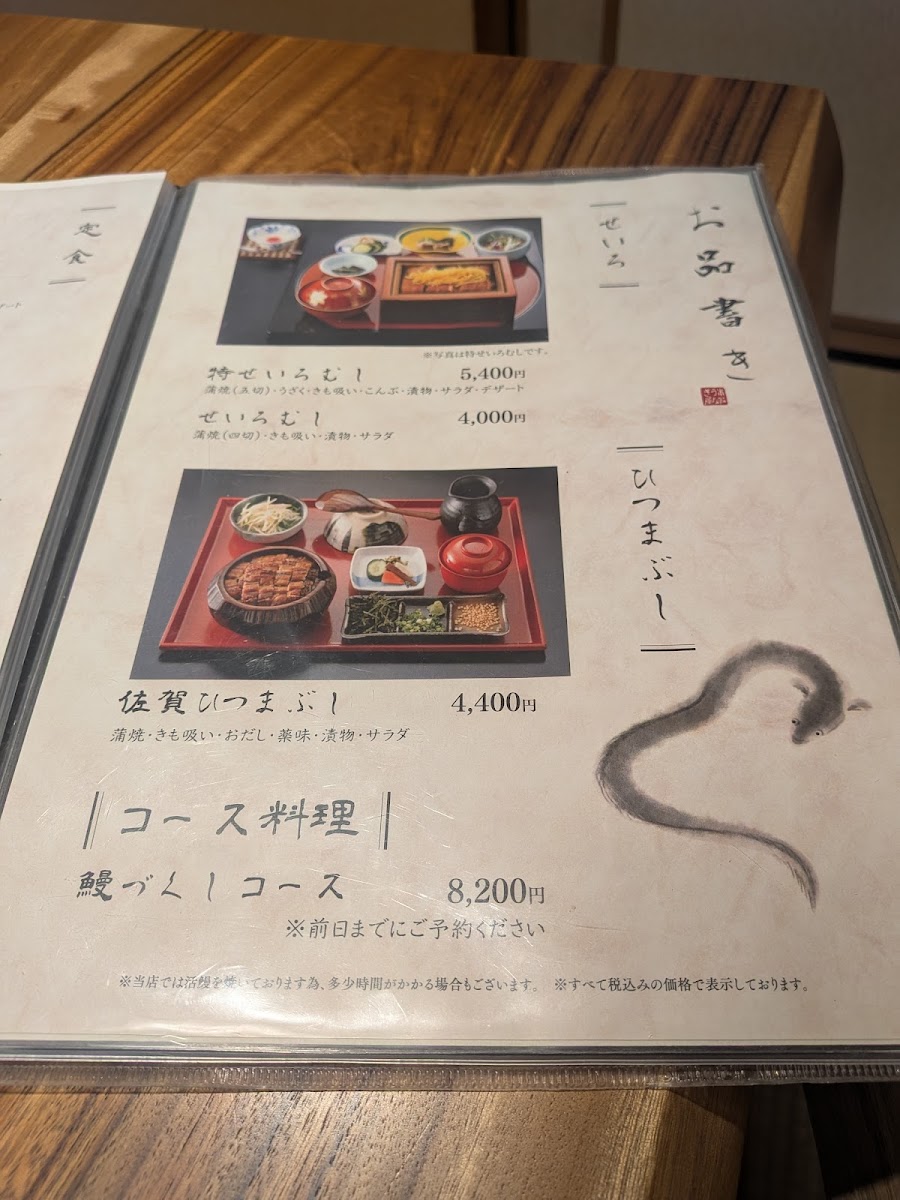 定食
お品書き
せいろ
※写真は特せいろむしです。
特せいろむし 5,400円
蒲焼(五切)・うざく・きも吸い・こんぶ・漬物・サラダ・デザート
せいろむし 4,000円
蒲焼(四切)・きも吸い・漬物・サラダ
ひつまぶし
佐賀ひつまぶし 4,400円
蒲焼・きも吸い・おだし・薬味・漬物・サラダ
コース料理
鰻づくしコース 8,200円
※前日までにご予約ください
※当店では活鰻を焼いております為、多少時間がかかる場合もございます。 ※すべて税込みの価格で表示しております。